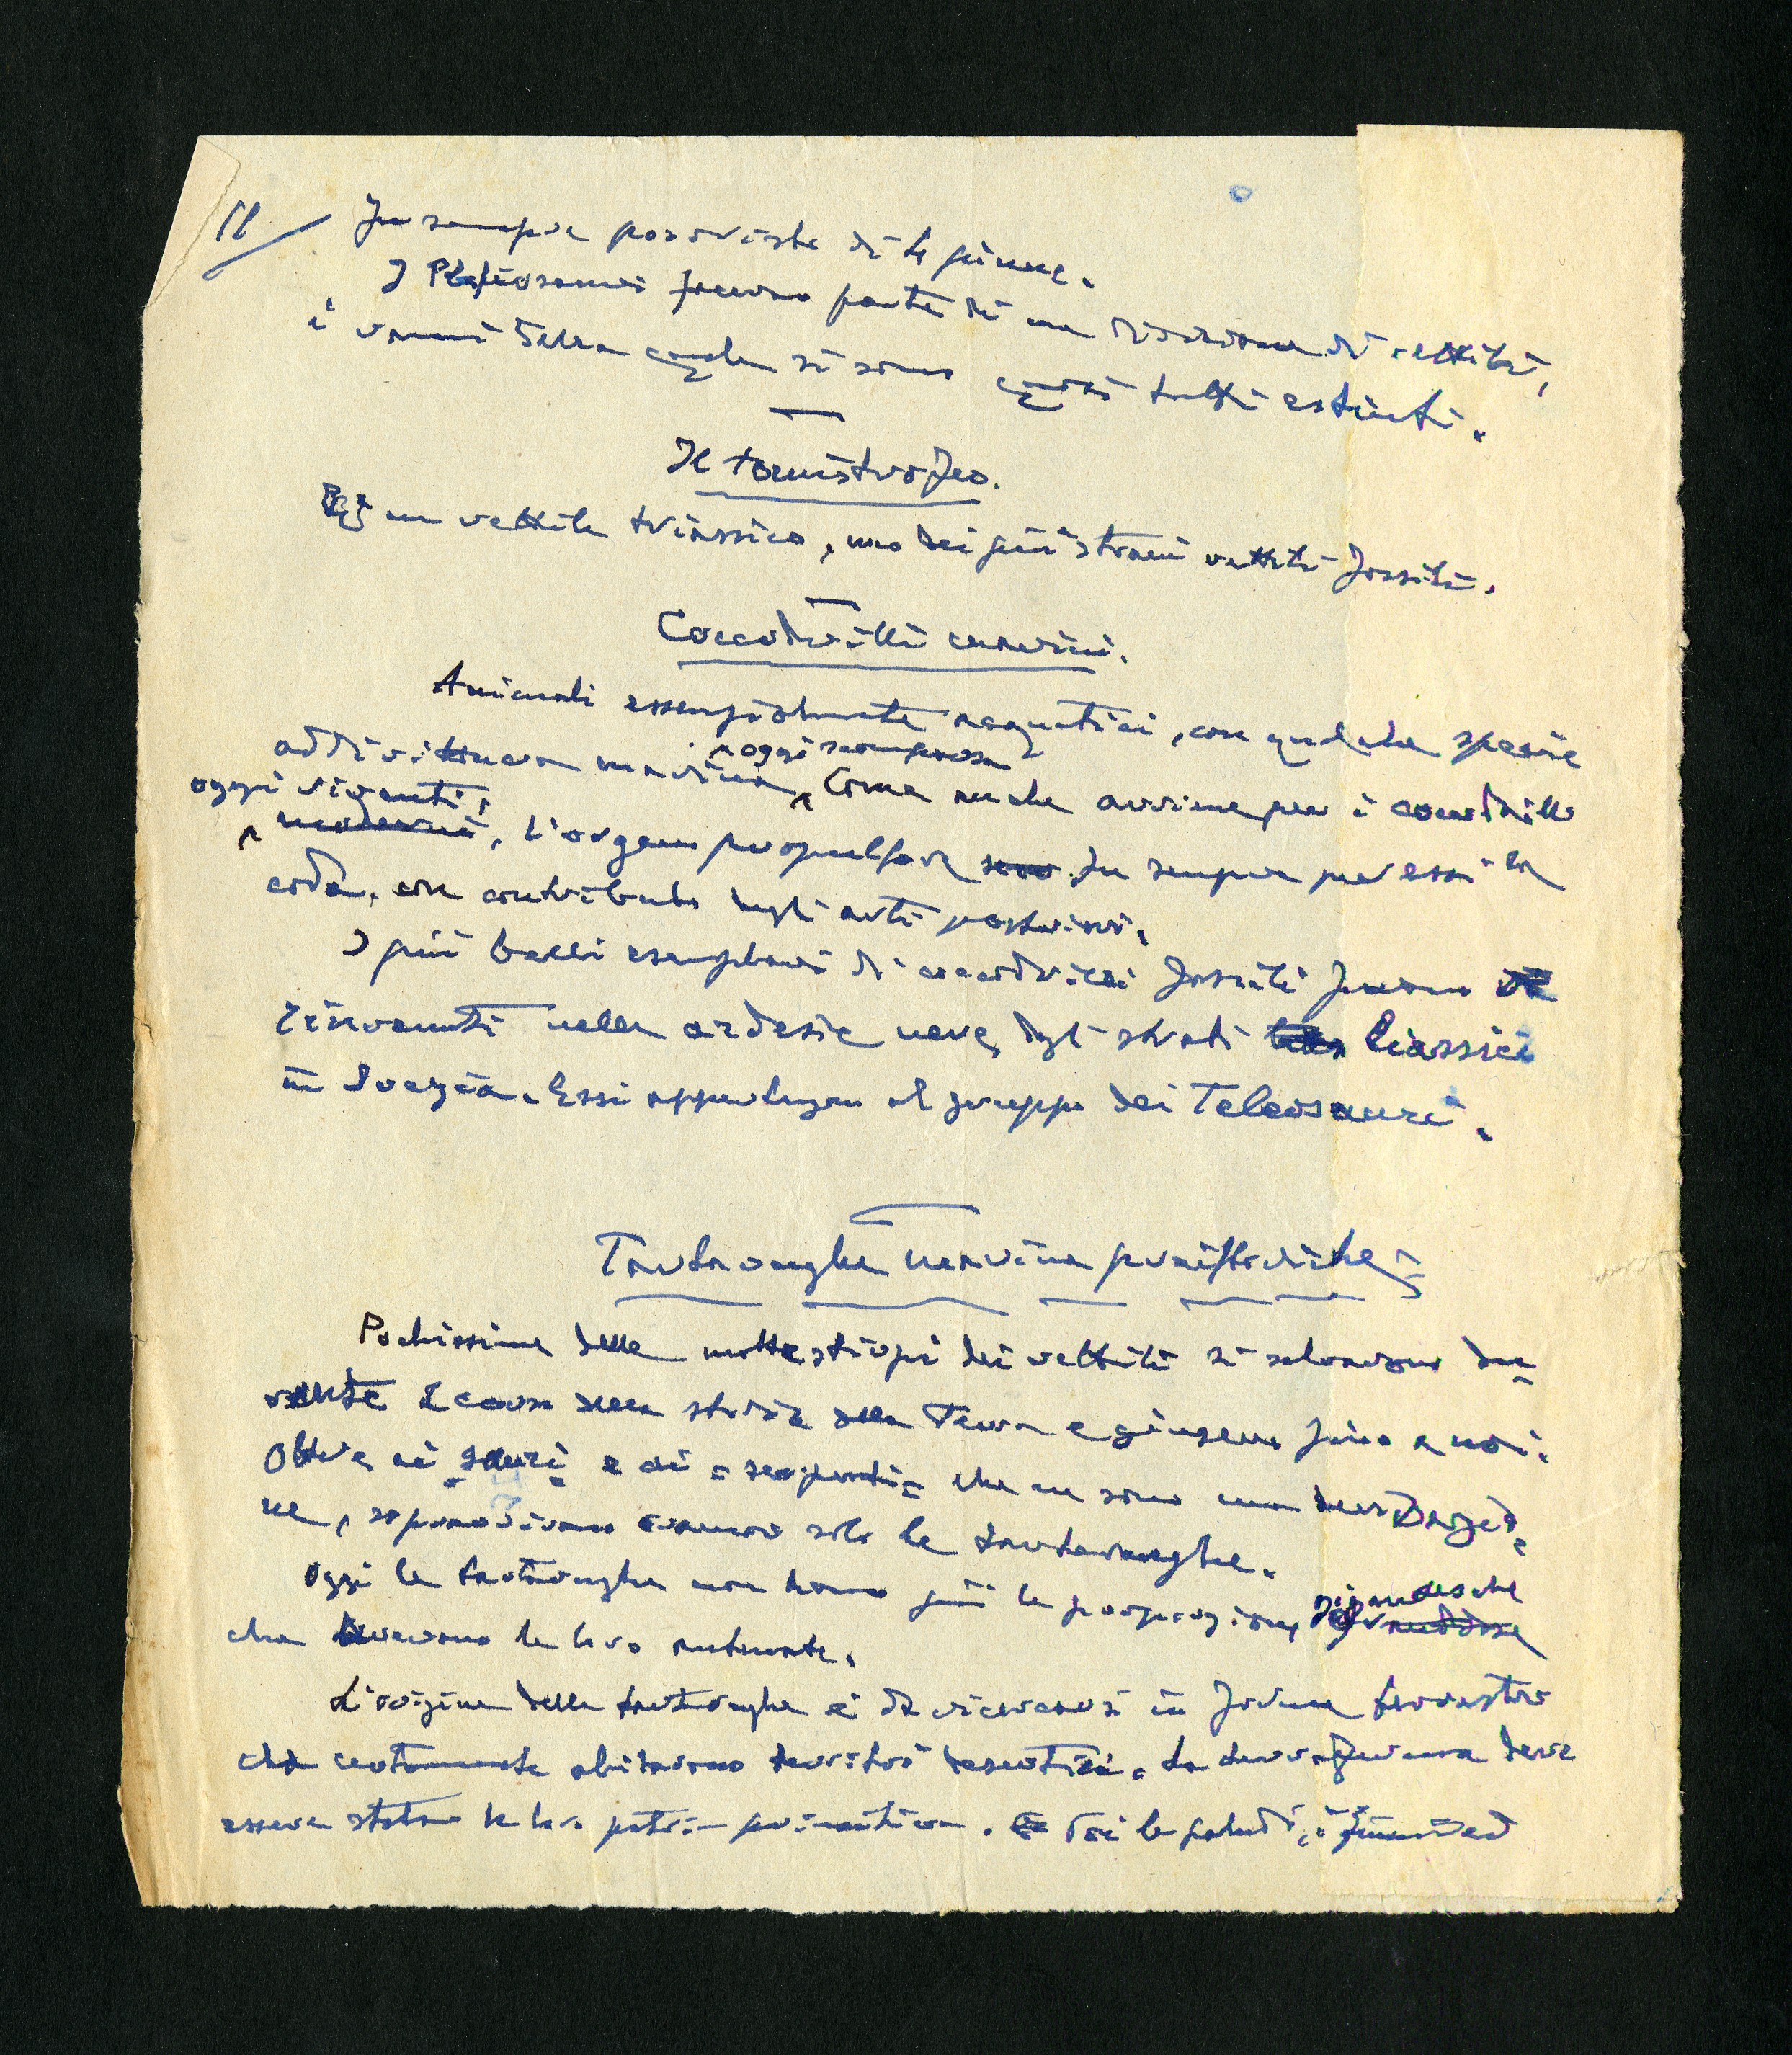 11/ Fu sempre provvista di 4 pinne.
I Plesiosauri facevano parte di una divisione di rettili,
i rami della quale si sono quasi tutti estinti.
Il tanistrofeo.
un rettile triassico, uno dei più strani rettili fossili.
Coccodrilli marini.
Animali essenzialmente acquatici, con qualche specie
oggi scomparsa
addirittura marina. Come anche avviene per i coccodrilli
oggi viventi,
moderni, l'organo propulsore fu sempre per essi la
coda, con contributo degli arti posteriori.
I più belli esemplari di coccodrilli fossili furono
rinvenuti nelle ardesie nere, degli strati liassici
in Svezia. Essi appartengono al gruppo dei Teleosauri.
Tartarughe marine preistoriche
Pochissime delle molte stirpi dei rettili si salvarono du-
rante il corso della storia della Terra e giunsero fino a noi.
Oltre ai "sauri" e ai "serpenti" che ne sono una
ne, sopravvivono ancora solo le tartarughe.
gigantesche
Oggi le tartarughe non hanno più le proporzioni grandiose
che avevano le loro antenate.
L'origine delle tartarughe è da ricercarsi in forme terrestri
che certamente abitavano territori desertici. La terraferma deve
essere stata la loro patria primitiva. Poi le paludi, i fiumi ed